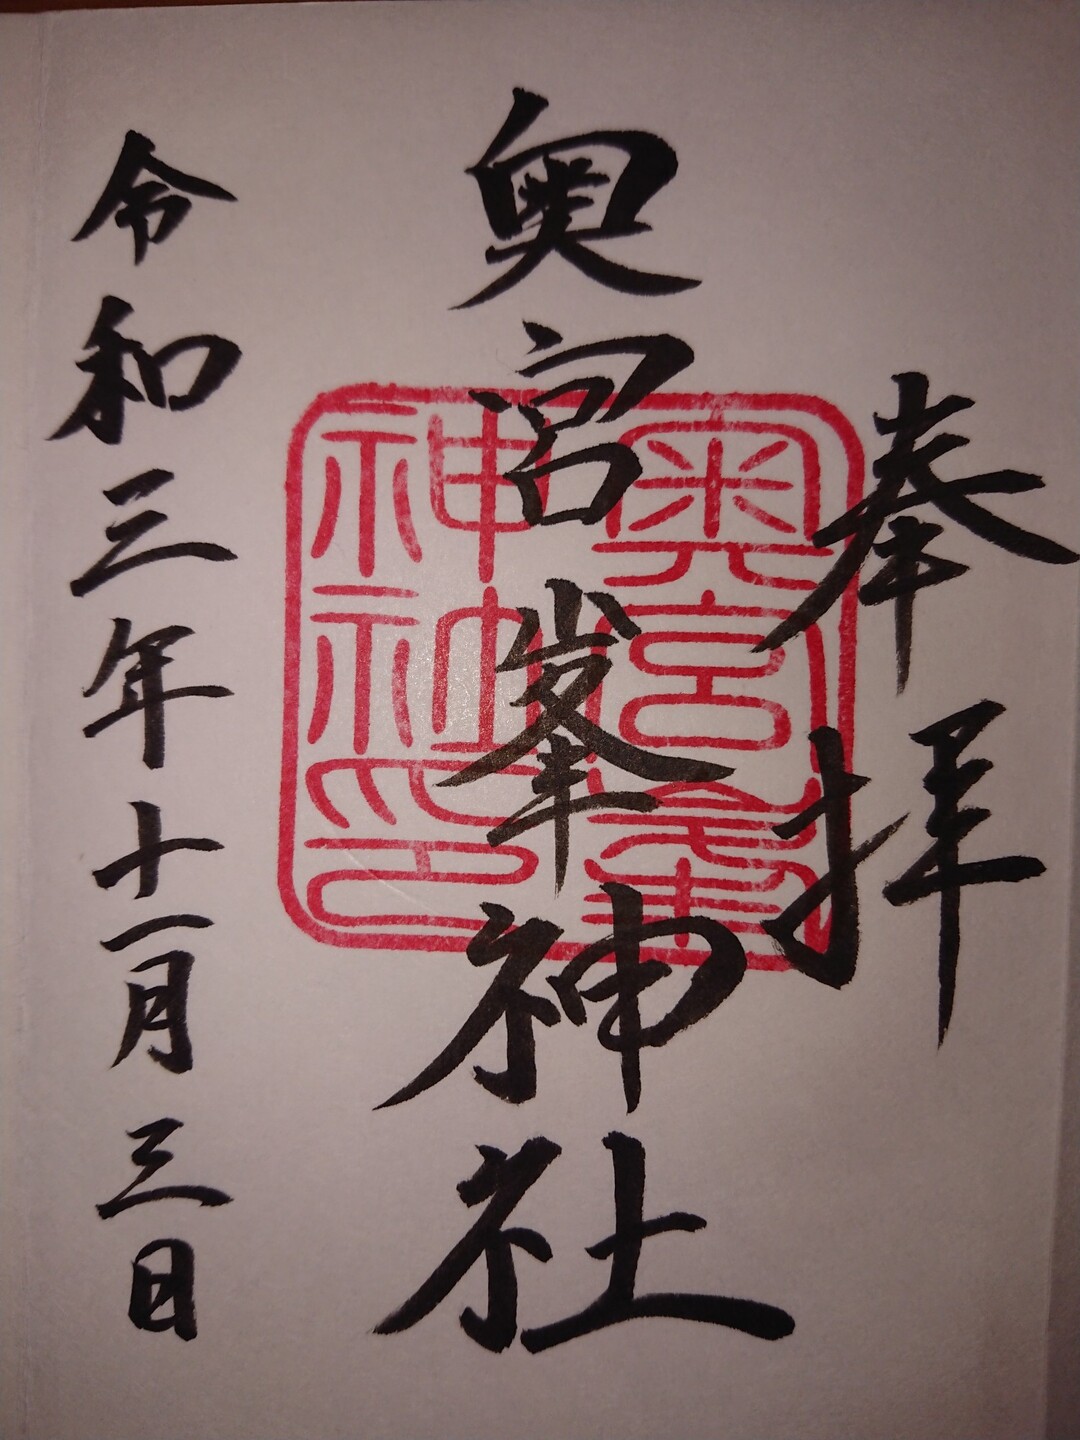 奉拝
奥宮峯神社
奥宮峯
神社印
令和三年十一月三日